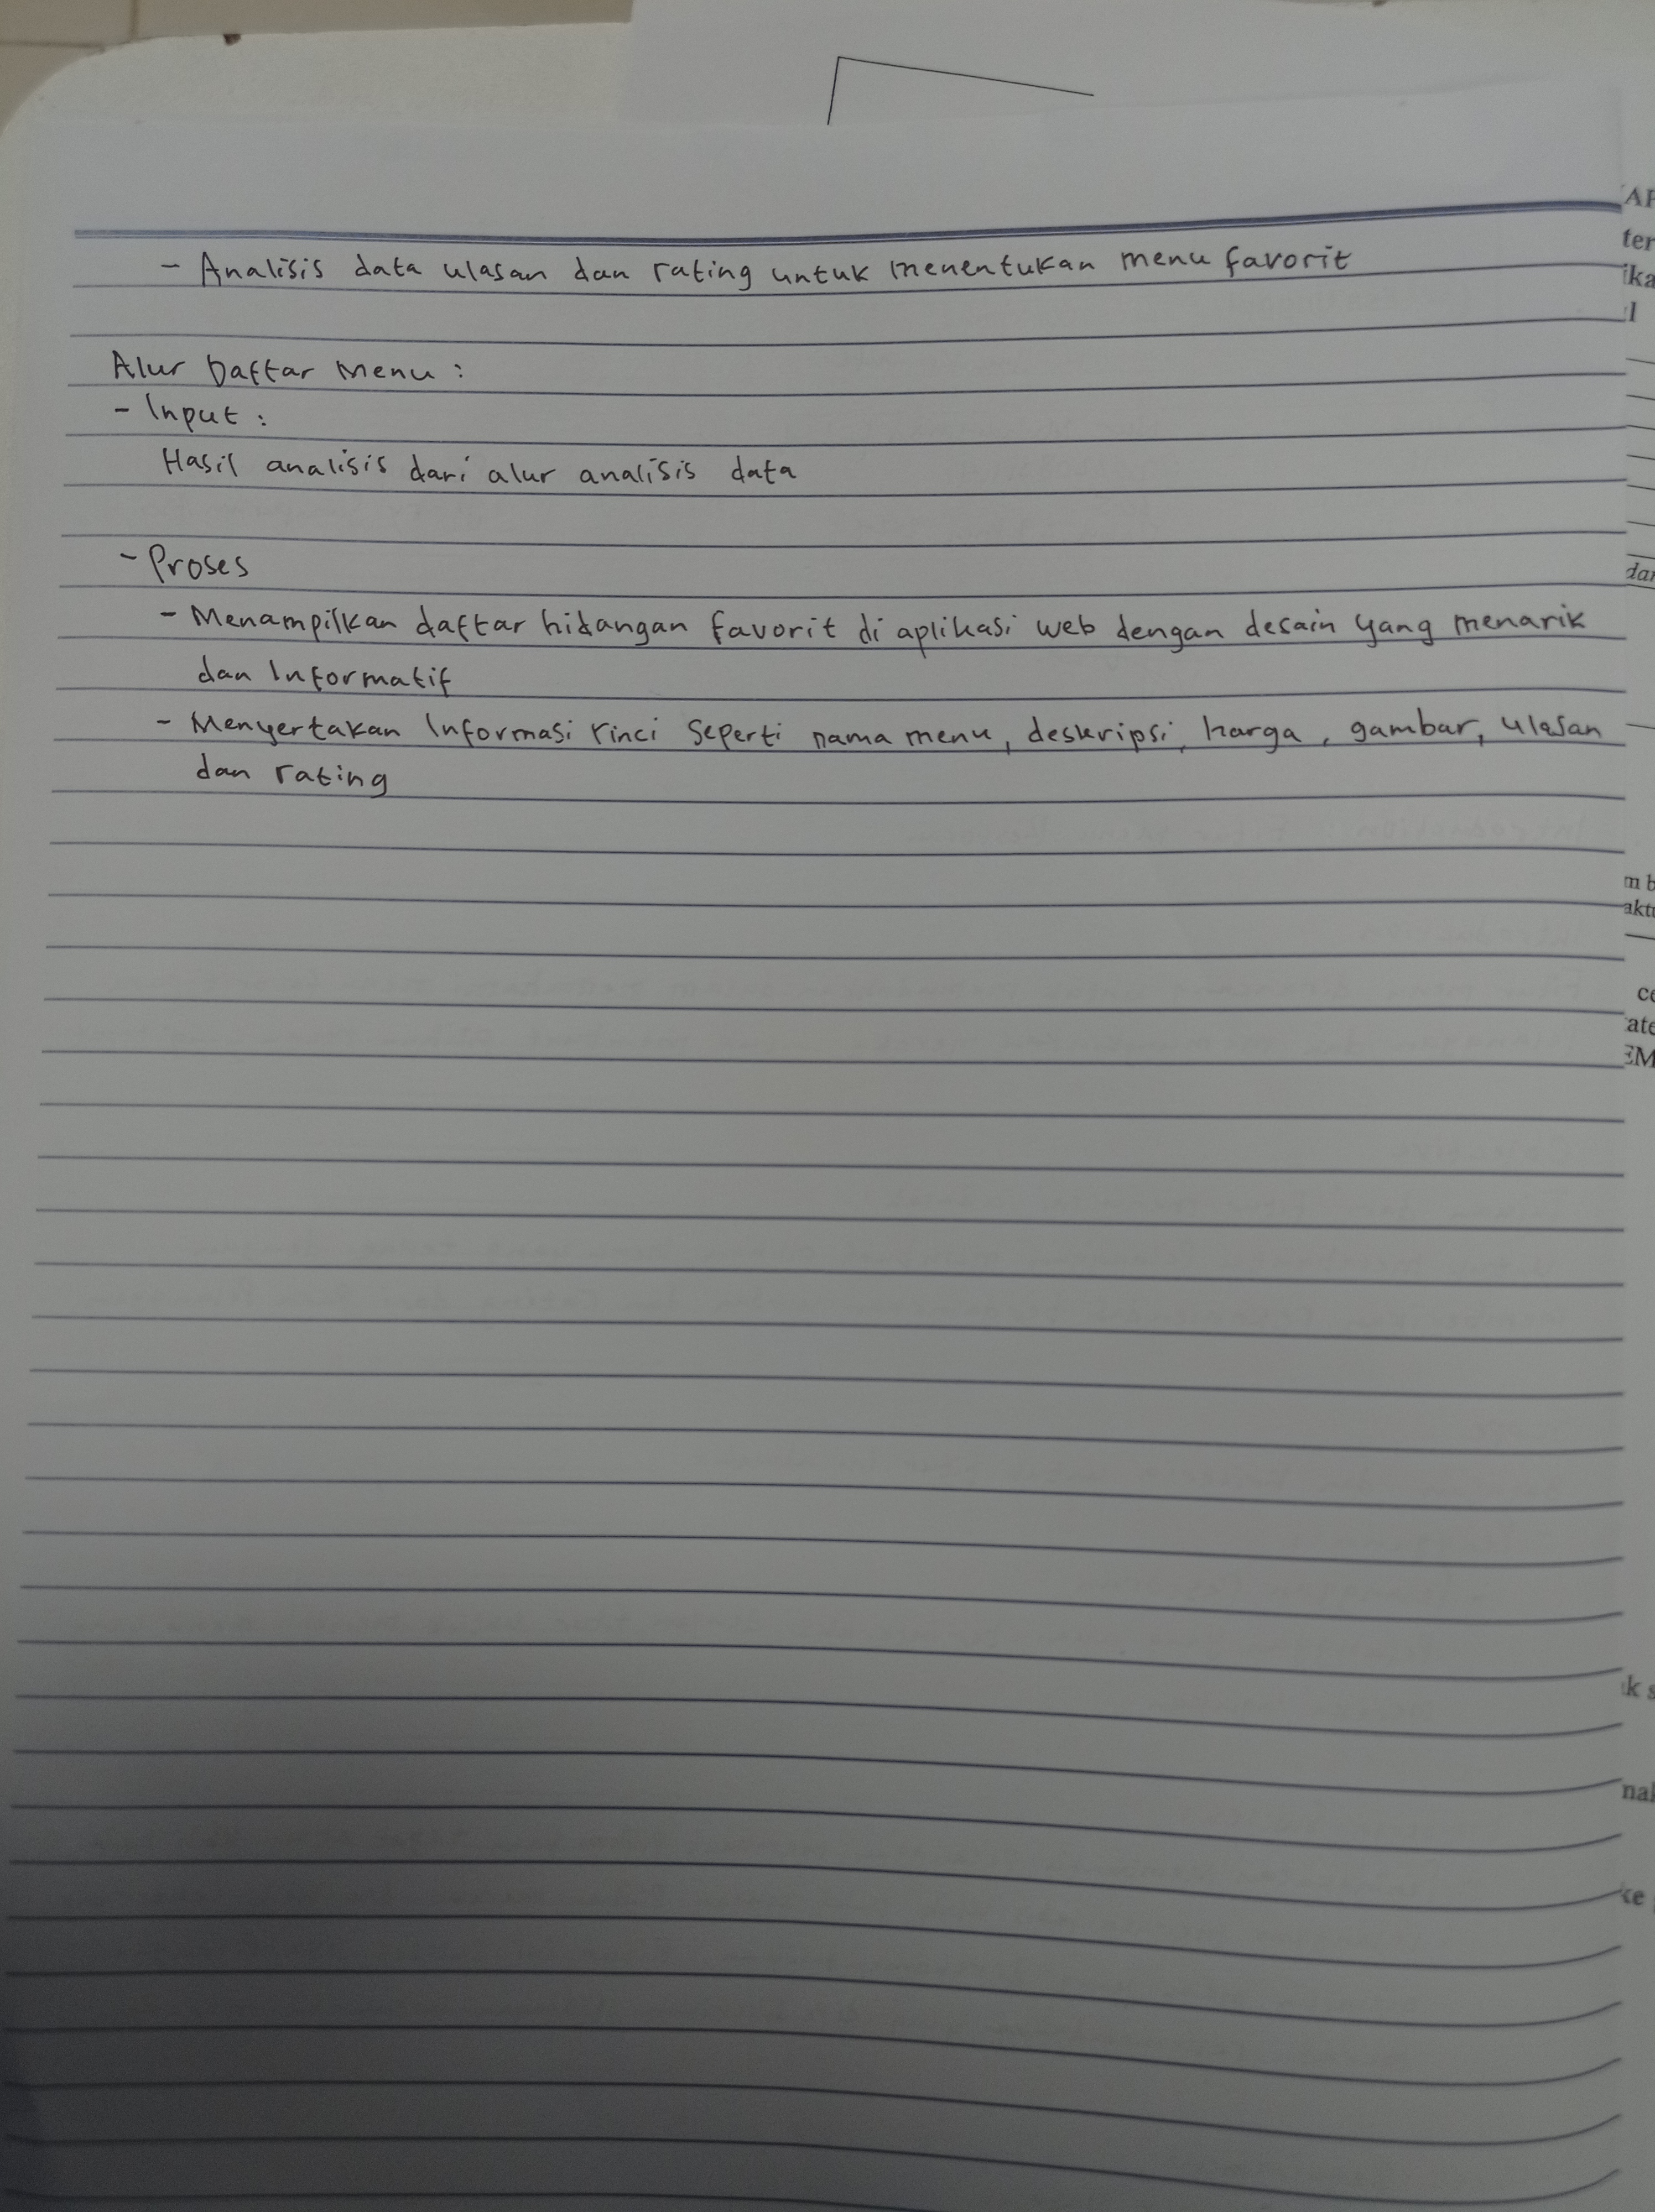 - Analisis data ulasan dan rating untuk menentukan menu favorit
Alur Daftar Menu :
- Input :
Hasil analisis dari alur analisis data
- Proses
- Menampilkan daftar hidangan favorit di aplikasi web dengan desain yang menarik
dan Informatif
- Menyertakan Informasi rinci seperti nama menu, deskripsi, harga, gambar, ulasan
dan rating